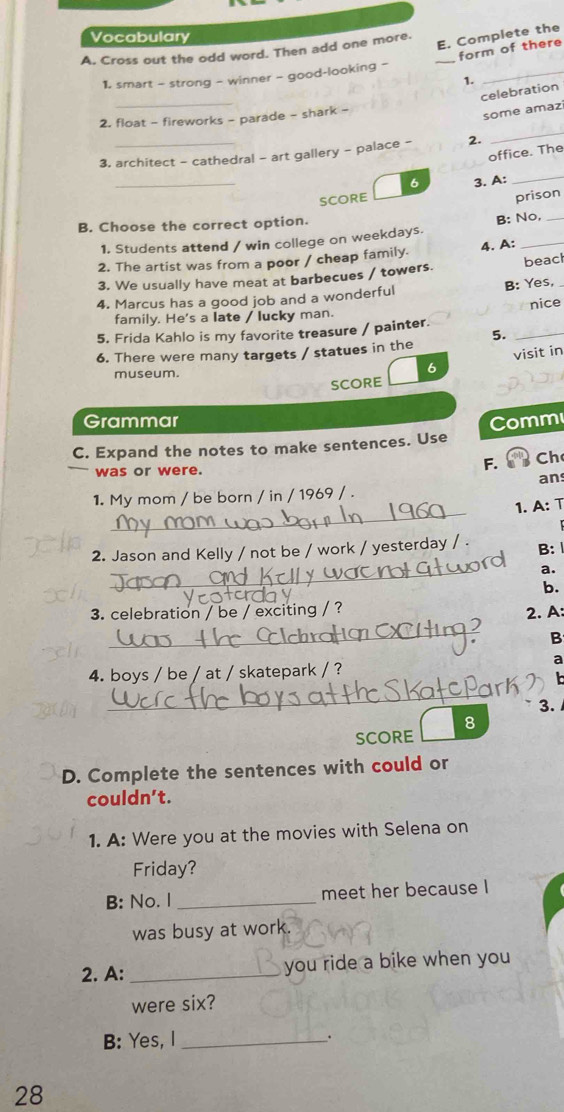 Vocabulary
A. Cross out the odd word. Then add one more.
1. smart – strong – winner – good-looking –
2. float – fireworks – parade – shark –
3. architect – cathedral – art gallery – palace –
SCORE 6
B. Choose the correct option.
1. Students attend / win college on weekdays.
2. The artist was from a poor / cheap family.
3. We usually have meat at barbecues / towers.
4. Marcus has a good job and a wonderful
family. He's a late / lucky man.
5. Frida Kahlo is my favorite treasure / painter.
6. There were many targets / statues in the
museum.
SCORE 6
Grammar
C. Expand the notes to make sentences. Use
was or were.
1. My mom / be born / in / 1969 / .
My mom was born In 1969
2. Jason and Kelly / not be / work / yesterday / .
Jason and Kelly wer not at word
yesterday
3. celebration / be / exciting / ?
Was the Celebration exciting?
4. boys / be / at / skatepark / ?
Were the boys at the Skate Park?
SCORE 8
D. Complete the sentences with could or
couldn't.
1. A: Were you at the movies with Selena on
Friday?
B: No. I ______ meet her because I
was busy at work.
2. A: ______ you ride a bike when you
were six?
B: Yes, I ______.
28
E. Complete the
form of there
1.
celebration
some amaz
2.
office. The
3. A:
prison
B: No,
4. A:
beach
B: Yes,
nice
5.
visit in
Comm
F. Ch
ans
1. A: T
B:
a.
b.
2. A:
B
a
b
3.